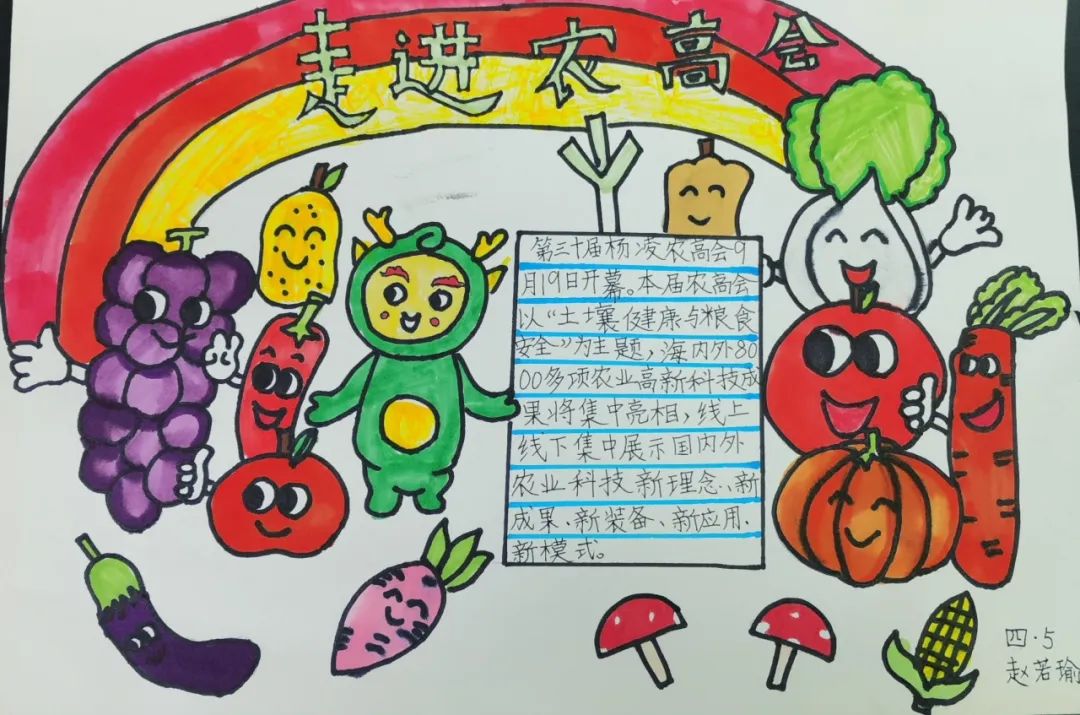 走进农高会
第三十届杨凌农高会9
月19日开幕。本届农高会
以“土壤健康与粮食
安全”为主题,海内外80
00多项农业高新科技成
果将集中亮相,线上
线下集中展示国内外
农业科技新理念、新
成果、新装备、新应用、
新模式。
四·5
赵若瑜